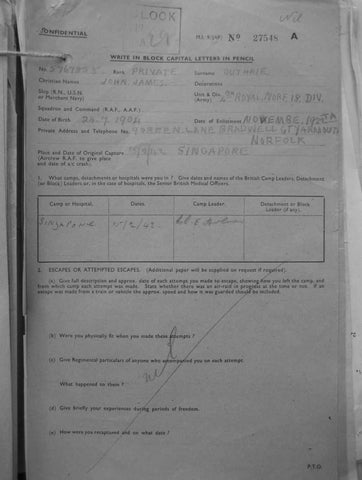 CONFIDENTIAL
LOCK
Nil
M.I. 9/JAP/ No 27548 A
WRITE IN BLOCK CAPITAL LETTERS IN PENCIL
No. Rank PRIVATE Surname GUTHRIE
Christian Names JOHN JAMES Decorations
Ship (R.N., U.S.N or Merchant Navy) Unit & Div. (Army) 4TH ROYAL NORF. 18. DIV.
Squadron and Command (R.A.F., A.A.F.)
Date of Birth 26.7.1904 Date of Enlistment
Private Address and Telephone GREEN LANE BRADWELL GT YARMOUTH
NORFOLK
Place and Date of Original Capture 15/2/42 SINGAPORE
(Aircrew R.A.F. to give place and date of a/c crash).
1. What camps, detachments or hospitals were you in ? Give dates and names of the British Camp Leader, Detachment (or Block) Leaders or, in the case of hospitals, the Senior British Medical Officers.
Camp or Hospital. Dates. Camp Leader. Detachment or Block Leader (if any).
SINGAPORE 15/2/42
2. ESCAPES OR ATTEMPTED ESCAPES. (Additional paper will be supplied on request if required).
(a) Give full description and approx. date of each attempt you made to escape, showing how you left the camp, and from which camp each attempt was made. State whether there was an air-raid in progress at the time or not. If an escape was made from a train or vehicle the approx. speed and how it was guarded should be included.
(b) Were you physically fit when you made these attempts ?
(c) Give Regimental particulars of anyone who accompanied you on each attempt.
What happened to them ?
nil
(d) Give briefly your experiences during periods of freedom.
(e) How were you recaptured and on what date ?
P.T.O.